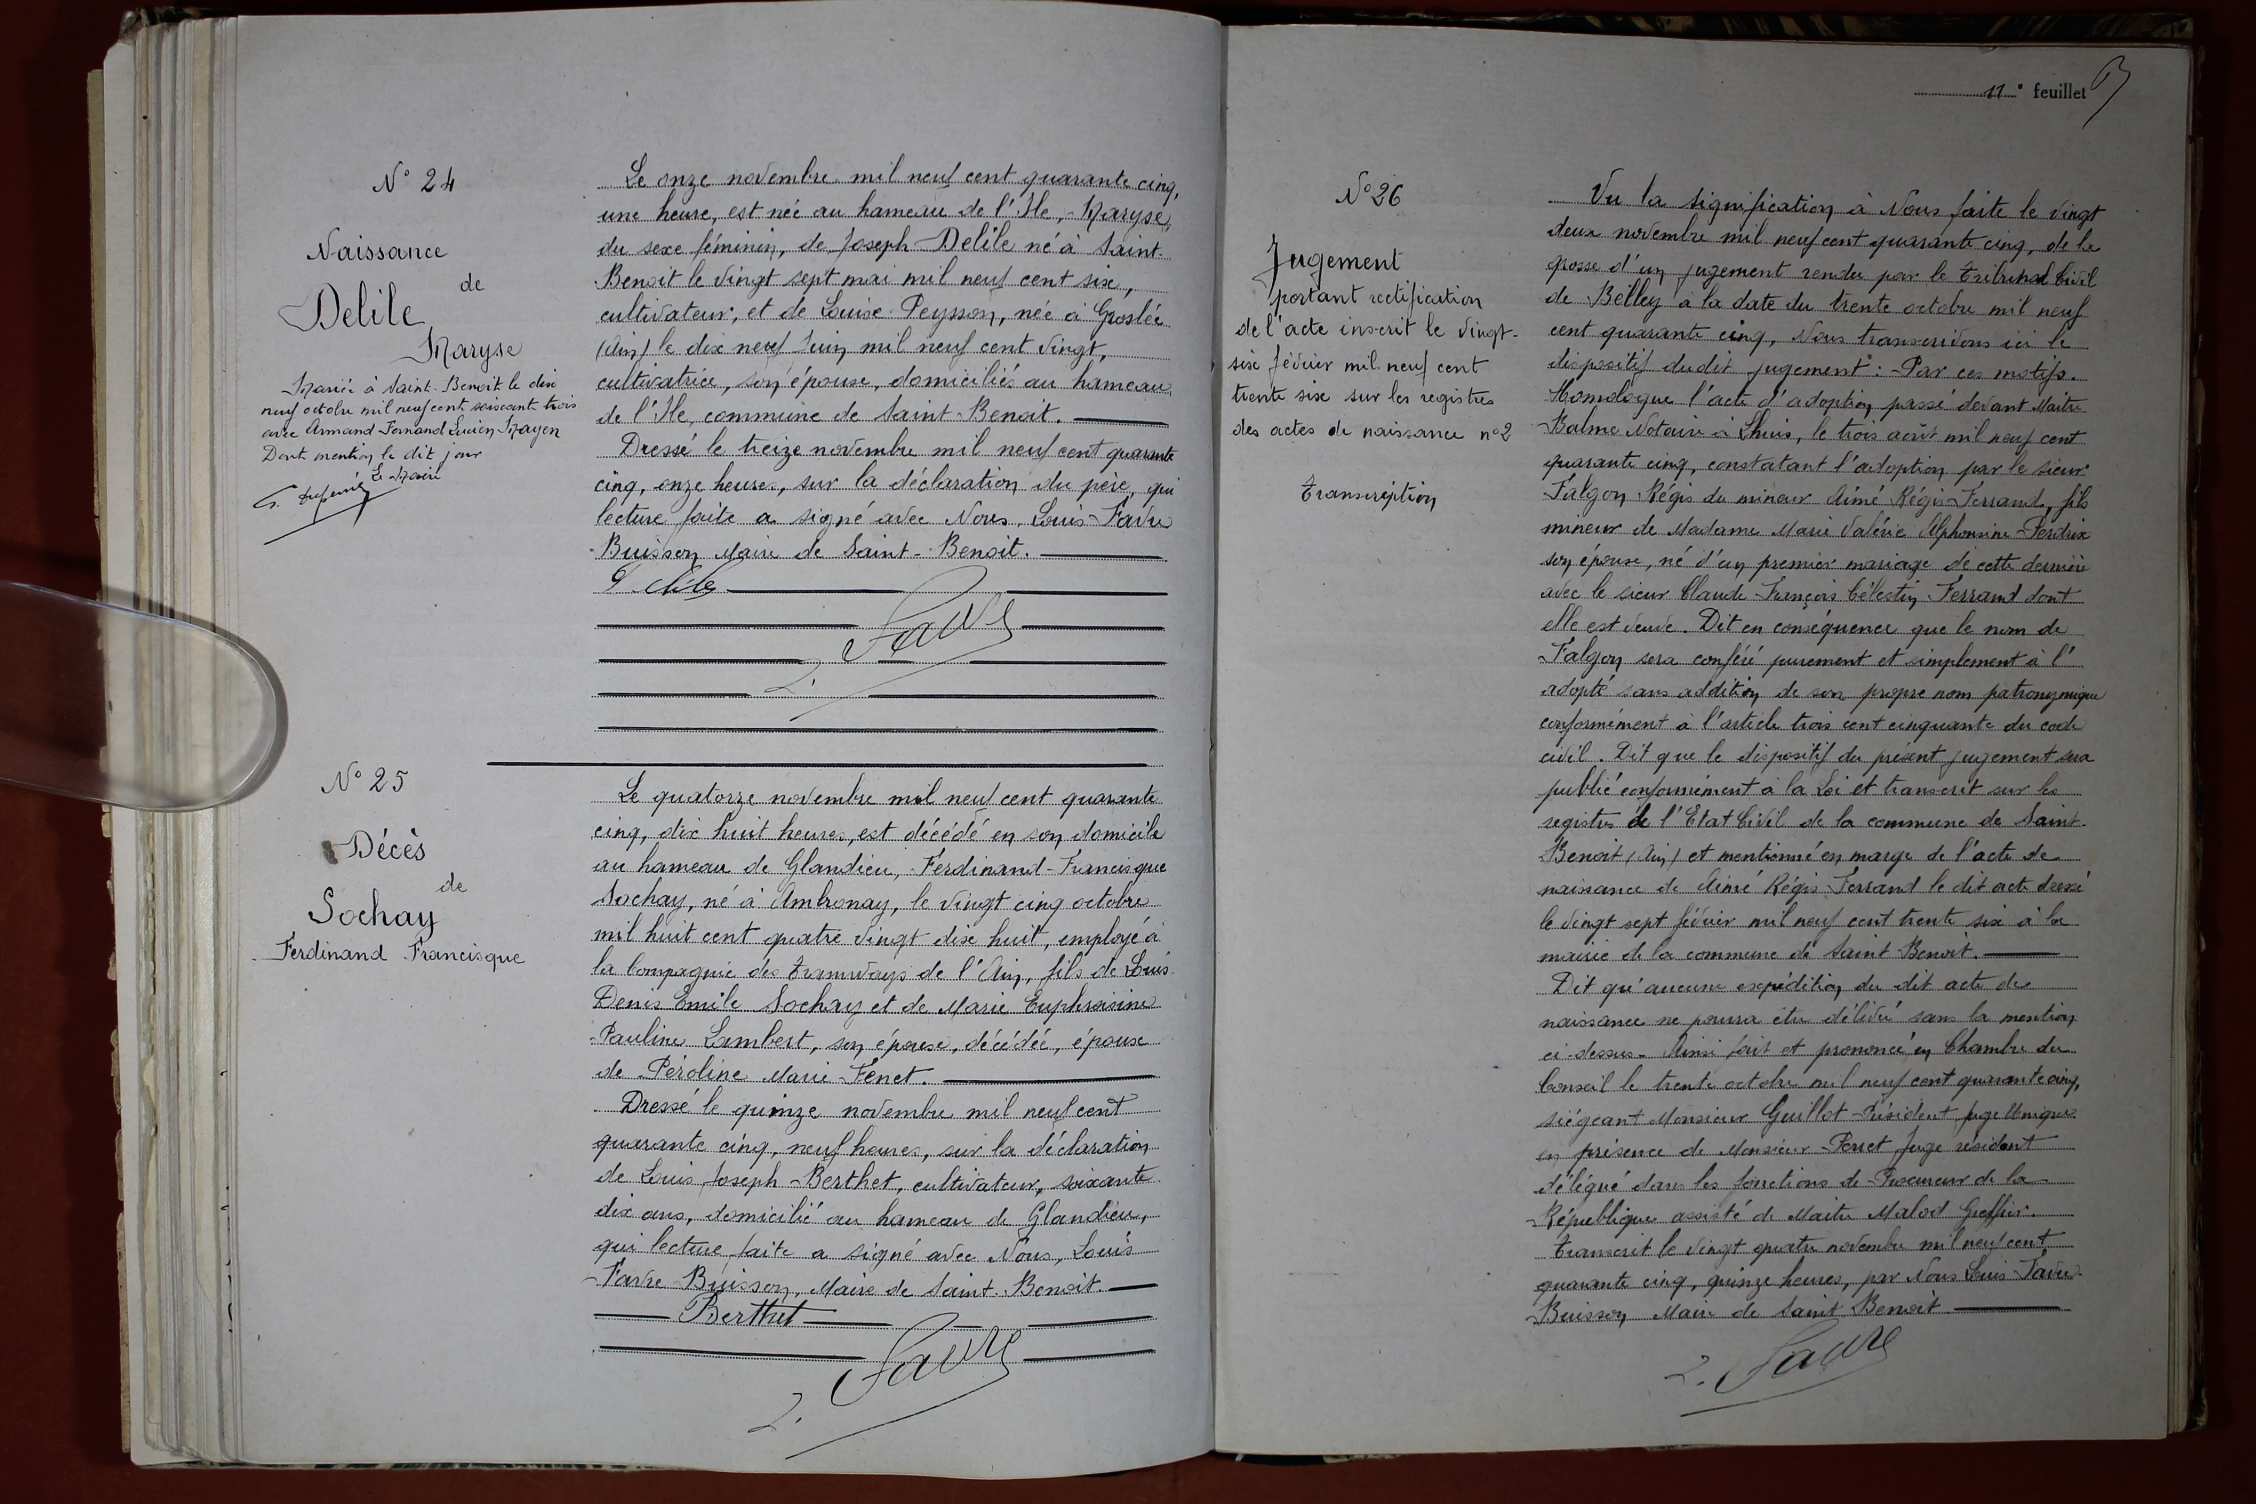 N° 24
Naissance
de
Delile
Maryse
Mariée à Saint-Benoit le dix
neuf octobre mil neuf cent soixante trois
avec Armand Fernand Lucien Mayen
Dont mention le dit jour
Le Maire
Le onze novembre mil neuf cent quarante cinq,
une heure, est née au hameau de l'Ile, Maryse,
du sexe féminin, de Joseph Delile né à Saint-
Benoit le vingt sept mai mil neuf cent six,
cultivateur, et de Louise Peysson, née à Groslée
(Ain) le dix neuf Juin mil neuf cent vingt,
cultivatrice, son épouse, domiciliés au hameau
de l'Ile, commune de Saint-Benoit.
Dressé le treize novembre mil neuf cent quarante
cinq, onze heures, sur la déclaration du père, qui
lecture faite a signé avec Nous, Louis Favre
Buisson Maire de Saint-Benoit.
Delile
L. Favre
N° 25
Décès
de
Sochay
Ferdinand Francisque
Le quatorze novembre mil neuf cent quarante
cinq, dix huit heures, est décédé en son domicile
au hameau de Glandieu, Ferdinand-Francisque
Sochay, né à Ambronay, le vingt cinq octobre
mil huit cent quatre vingt dix huit, employé à
la Compagnie des tramways de l'Ain, fils de Louis
Denis Emile Sochay et de Marie Euphroisine
Pauline Lambert, son épouse, décédée, épouse
de Péroline Marie Fenet.
Dressé le quinze novembre mil neuf cent
quarante cinq, neuf heures, sur la déclaration
de Louis Joseph Berthet, cultivateur, soixante
dix ans, domicilié au hameau de Glandieu,
qui lecture faite a signé avec Nous, Louis
Favre Buisson, Maire de Saint-Benoit.
Berthet
L. Favre
11e feuillet
N° 26
Jugement
portant rectification
de l'acte inscrit le vingt-
six février mil neuf cent
trente six sur les registres
des actes de naissance n° 2
transcription
Vu la signification à Nous faite le vingt
deux novembre mil neuf cent quarante cinq, de la
grosse d'un jugement rendu par le tribunal Civil
de Belley à la date du trente octobre mil neuf
cent quarante cinq, Nous transcrivons ici le
dispositif dudit jugement : Par ces motifs.
Homologue l'acte d'adoption passé devant Maitre
Balme Notaire à Lhuis, le trois août mil neuf cent
quarante cinq, constatant l'adoption par le sieur
Falgon Régis du mineur Aimé Régis Ferrand, fils
mineur de Madame Marie Valérie Alphonsine Perdrix
son épouse, né d'un premier mariage de cette dernière
avec le sieur Claude François Célestin Ferrand dont
elle est veuve. Dit en conséquence que le nom de
Falgon sera conféré purement et simplement à l'
adopté sans addition de son propre nom patronymique
conformément à l'article trois cent cinquante du code
civil. Dit que le dispositif du présent jugement sera
publié conformément à la Loi et transcrit sur les
registres de l'Etat Civil de la commune de Saint-
Benoit (Ain) et mentionné en marge de l'acte de
naissance de Aimé Régis Ferrand le dit acte dressé
le vingt sept février mil neuf cent trente six à la
mairie de la commune de Saint Benoit.
Dit qu'aucune expédition du dit acte de
naissance ne pourra être délivré sans la mention
ci-dessus. Ainsi fait et prononcé en Chambre du
Conseil le trente octobre mil neuf cent quarante cinq,
siégeant Monsieur Guillot Président juge Unique
en présence de Monsieur Perret Juge résident
délégué dans les fonctions de Procureur de la
République assisté de Maitre Malod Greffier.
Transcrit le vingt quatre novembre mil neuf cent
quarante cinq, quinze heures, par Nous Louis Favre
Buisson, Maire de Saint Benoit
L. Favre